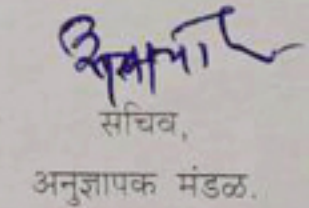 सचिव,
अनुज्ञापक मंडळ.